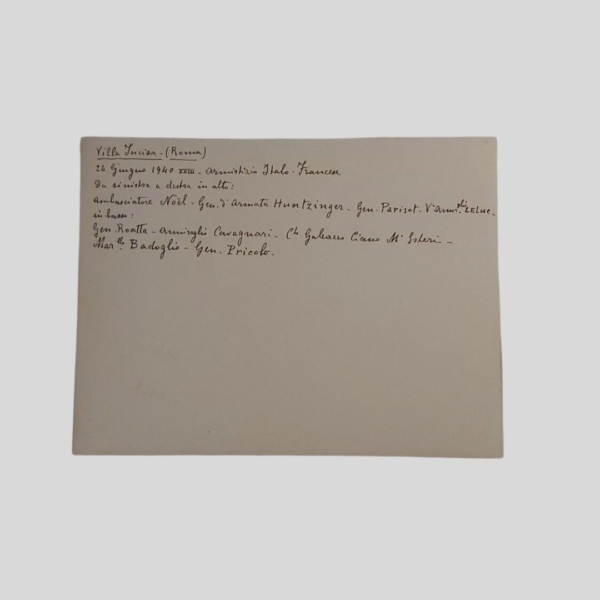 Villa Incisa - (Roma)
24 Giugno 1940 XVIII - Armistizio Italo-Francese
Da sinistra a destra in alto:
Ambasciatore Noël - Gen. d'Armata Huntzinger - Gen. Parisot - V'Amm. LELUC -
in basso:
Gen. Roatta - Ammiraglio Cavagnari - Cte Galeazzo Ciano Mo Esteri -
Marllo Badoglio - Gen. Pricolo.